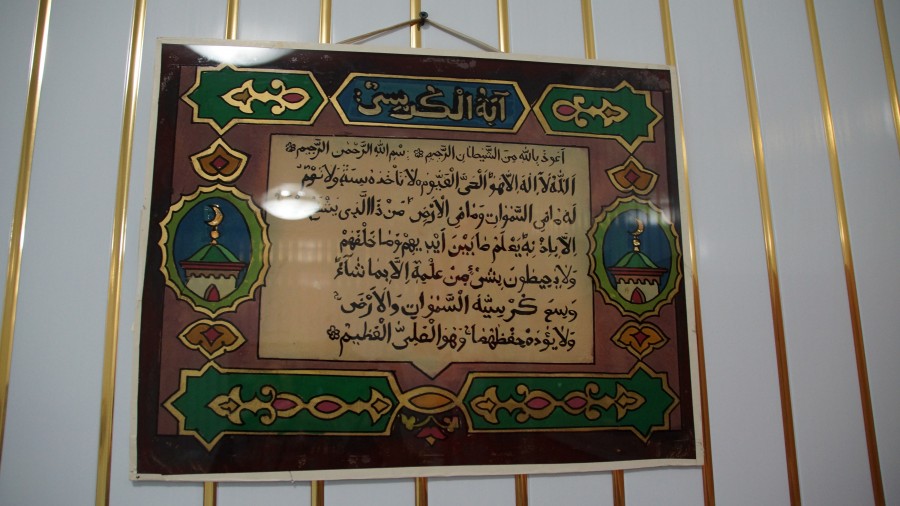 آية الكرسي
اعوذ بالله من الشيطان الرجيم ۞ بسم الله الرحمن الرحيم ۞
الله لا اله الا هو الحي القيوم لا تأخذه سنة ولا نوم
له ما في السموات وما في الارض من ذا الذي يشفع
الا باذنه يعلم ما بين ايديهم وما خلفهم
ولا يحيطون بشيء من علمه الا بما شاء
وسع كرسيه السموات والارض
ولا يؤده حفظهما وهو العلي العظيم ۞